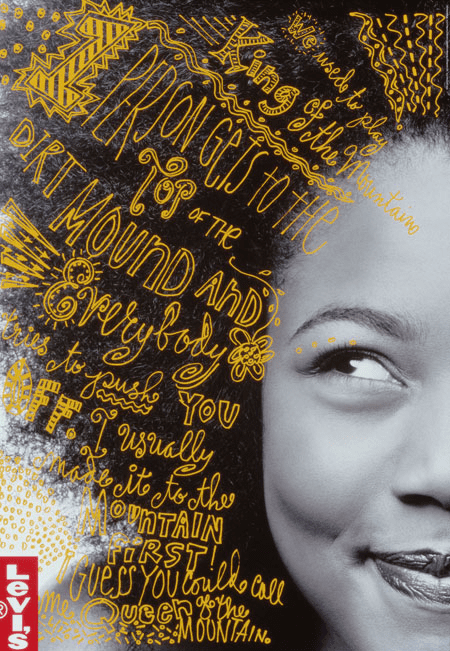 We used to play
King of the Mountain
1 PERSON GETS TO THE
TOP OF THE
DIRT MOUND AND
Everybody
tries to push YOU
OFF. I usually
made it to the
MOUNTAIN
FIRST!
I GUESS YOU could call
me Queen of the
MOUNTAIN.
LeVI'S
®